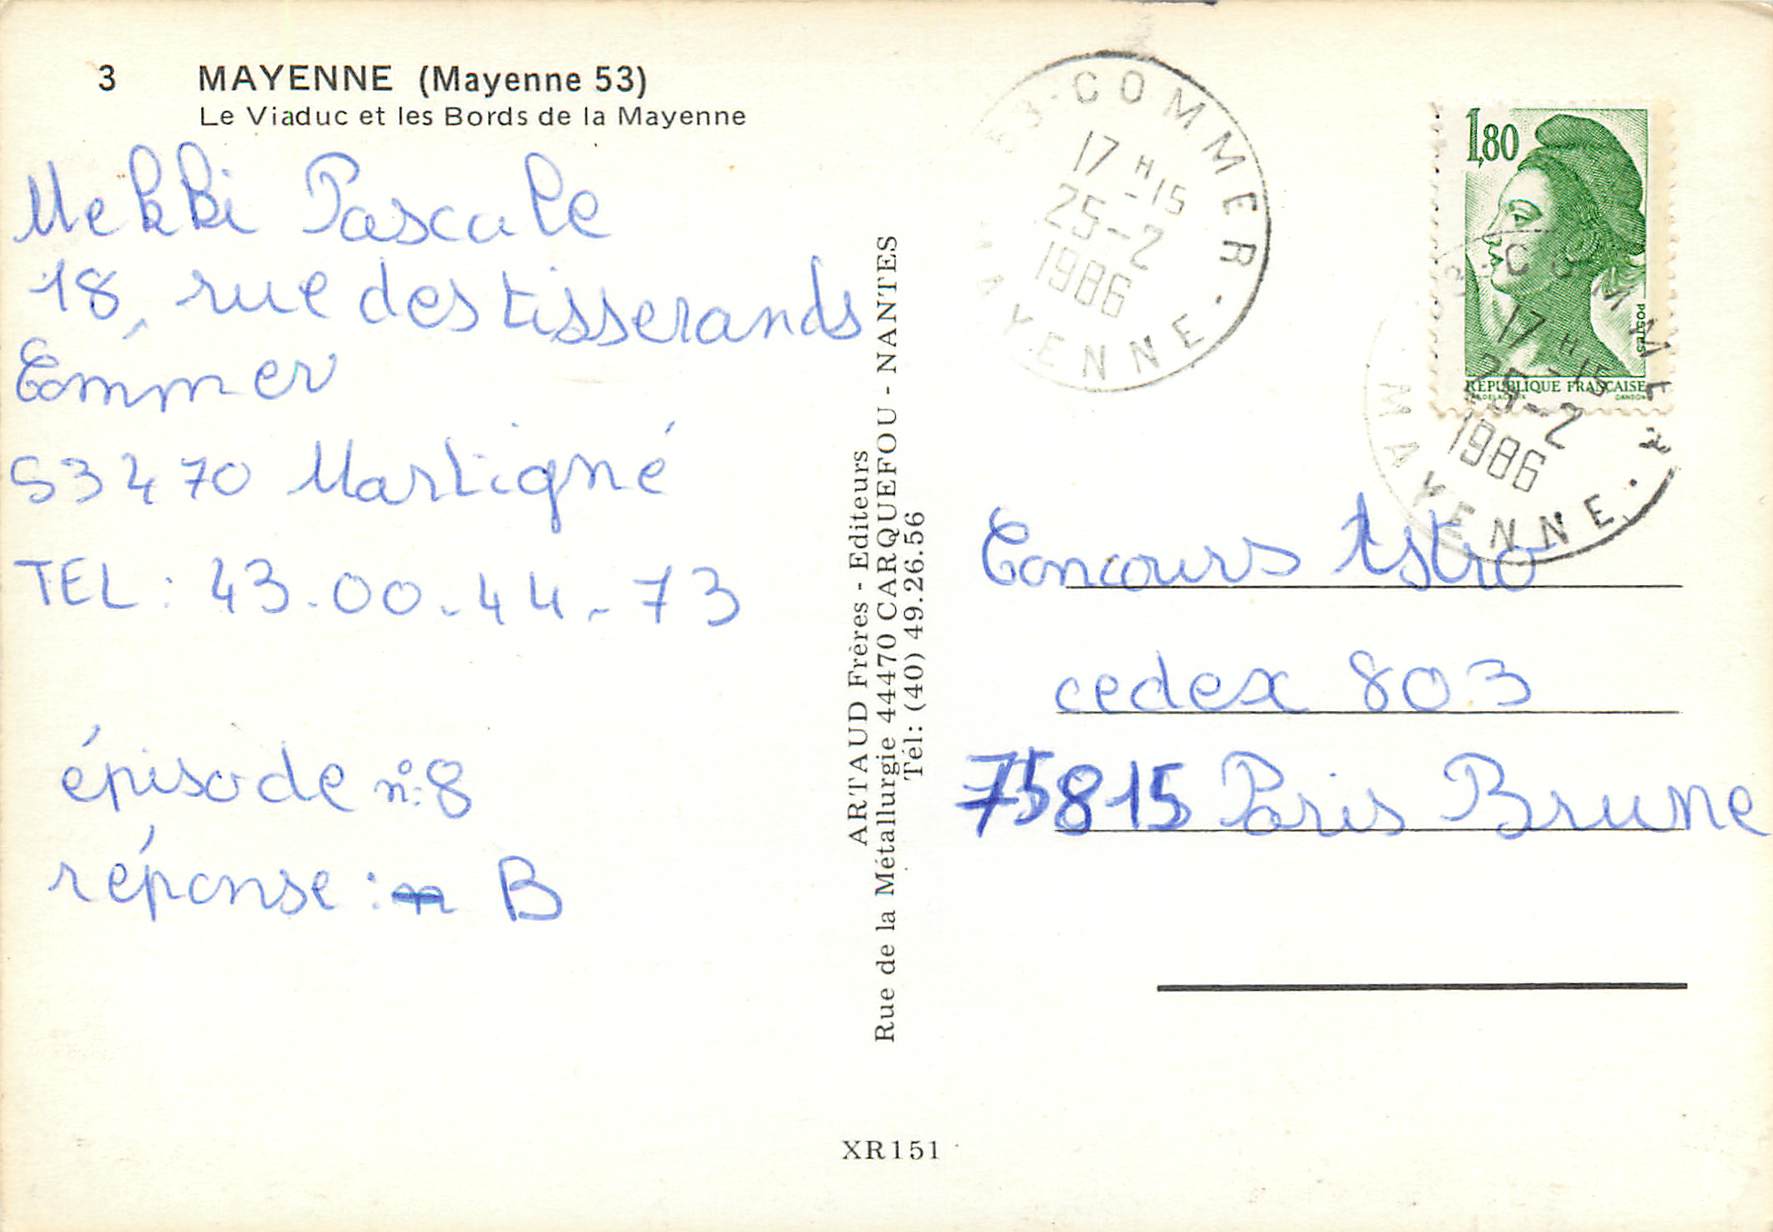 3 MAYENNE (Mayenne 53)
Le Viaduc et les Bords de la Mayenne
Mekki Pascale
18, rue des tisserands
Commer
53470 Martigné
TEL : 43.00.44.73
épisode n°8
réponse : B
ARTAUD Frères - Editeurs
Rue de la Métallurgie 44470 CARQUEFOU - NANTES
Tél: (40) 49.26.56
XR151
53-COMMER.
17 H -15
25-2
1986
MAYENNE
1,80
POSTES
RÉPUBLIQUE FRANÇAISE
COMMER
17 H -15
25-2
1986
MAYENNE.
Concours Astro
cedex 803
75815 Paris Brune